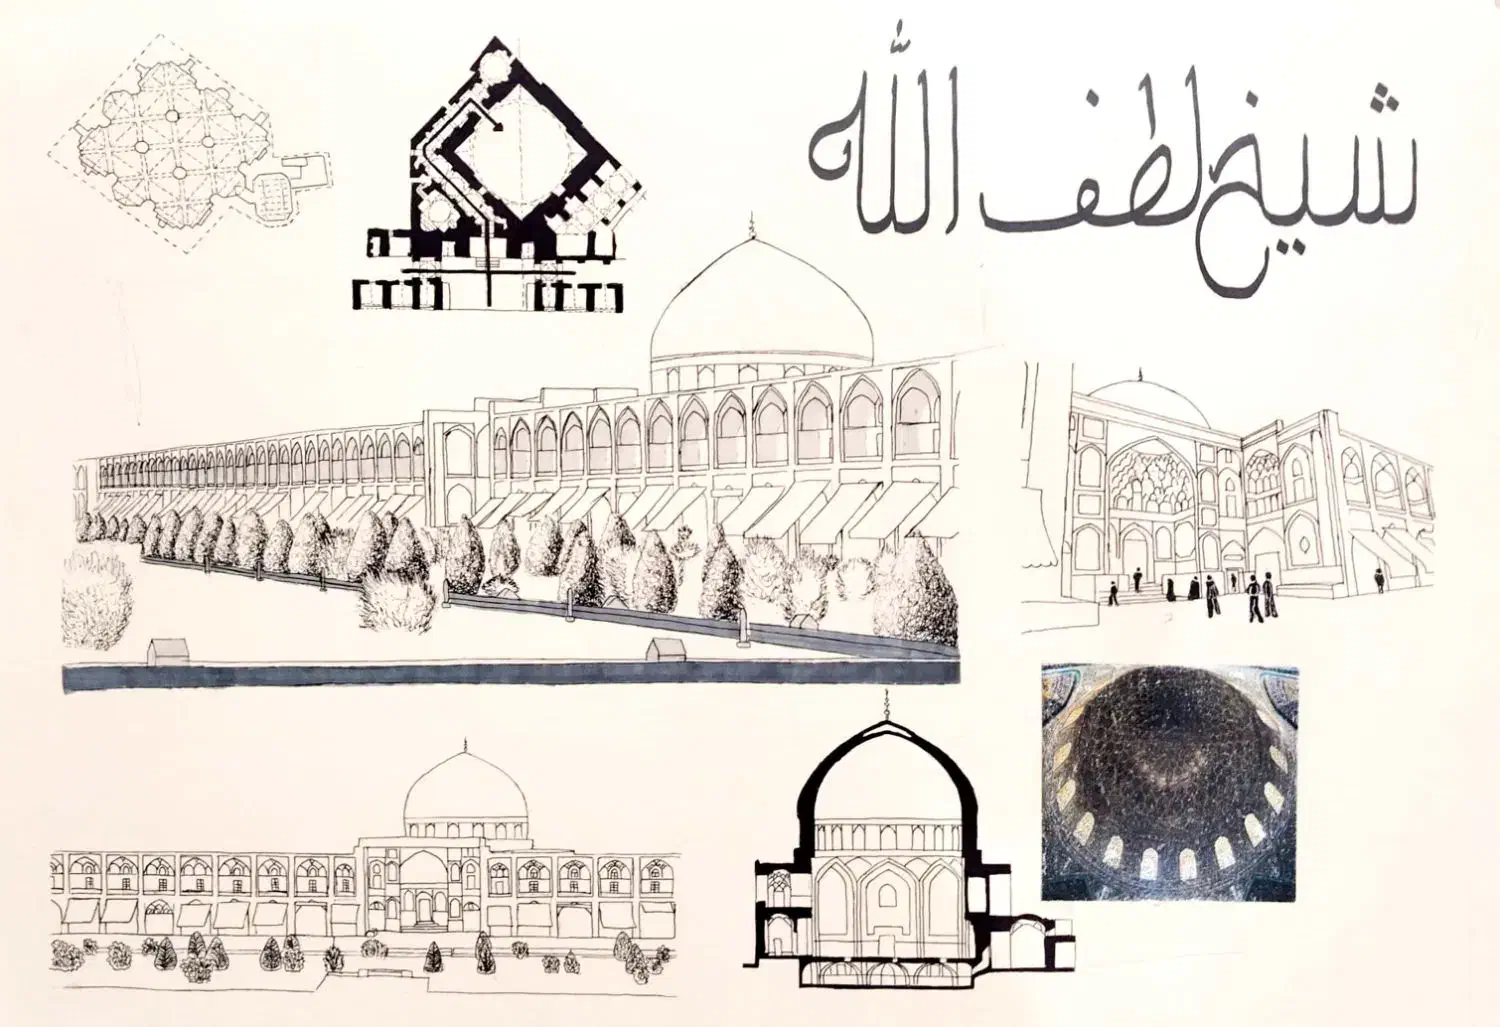 شیخ لطف الله